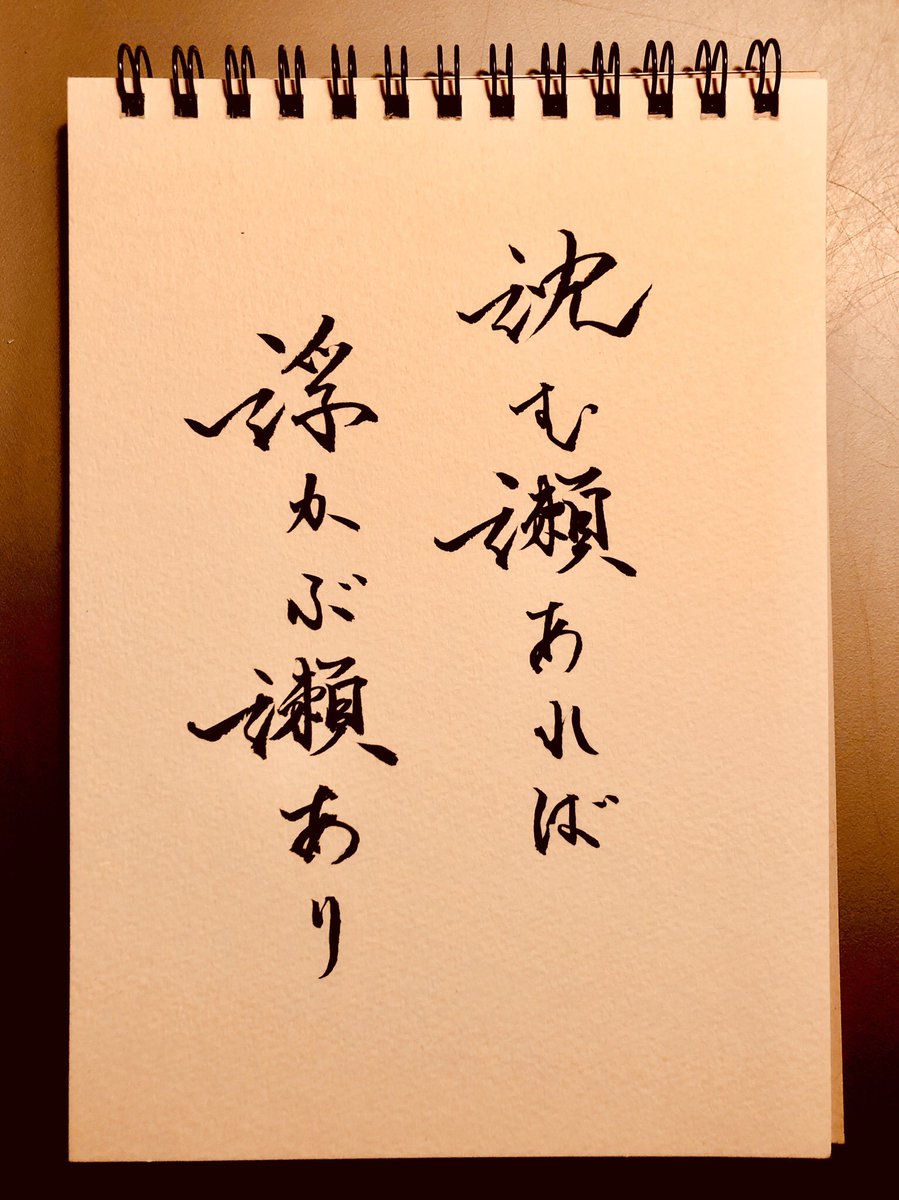 沈む瀬あれば
浮かぶ瀬あり